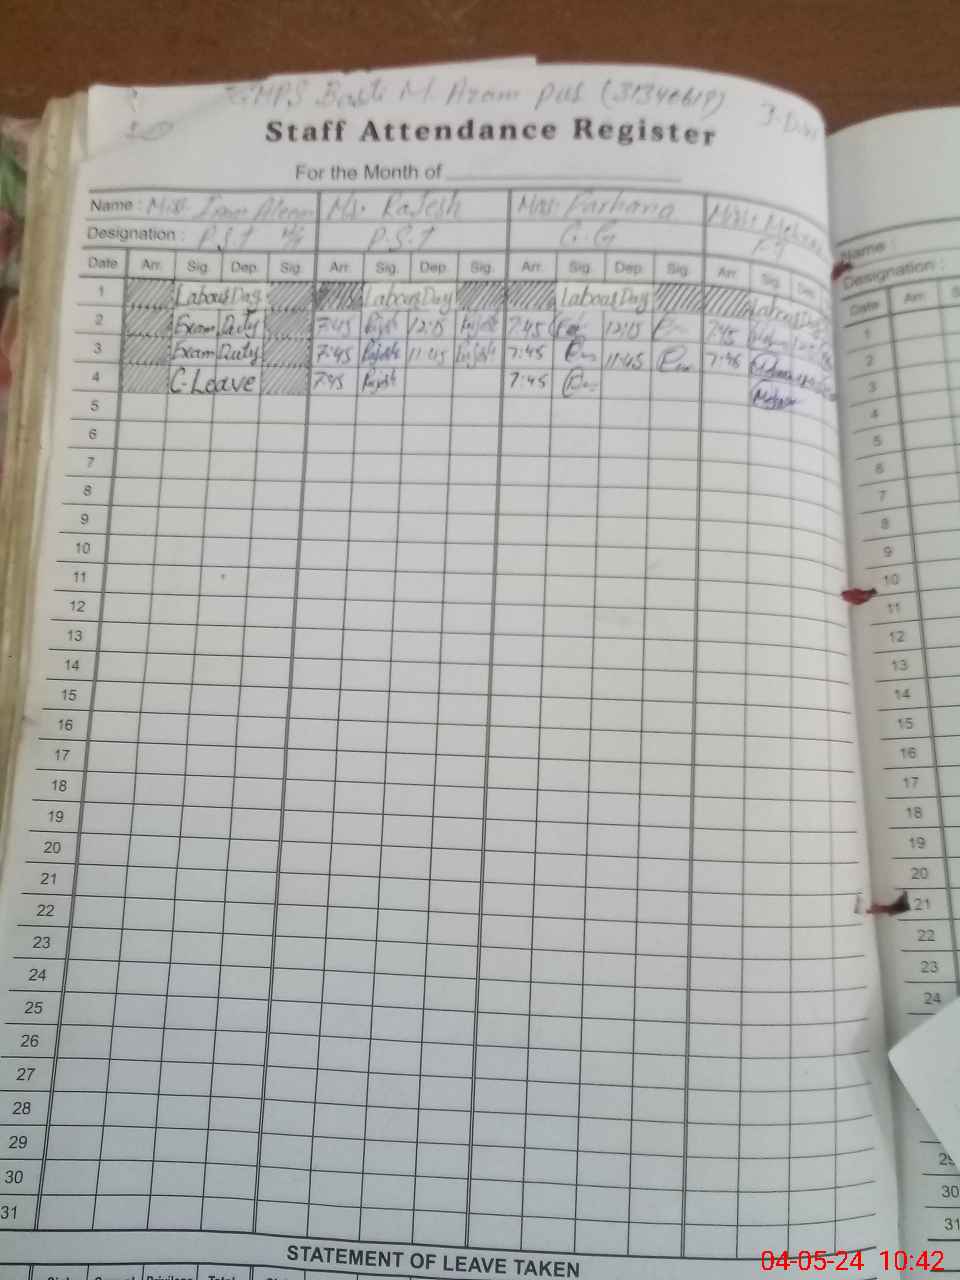 GMPS Basti M. Azam pur
Staff Attendance Register
For the Month of
Name : Miss. Ms. Rajesh Mrs. Farhana Miss.
Designation : P.S.T P.S.T
Date Arr. Sig. Dep. Sig. Arr. Sig. Dep. Sig. Arr. Sig. Dep. Sig. Arr. Sig. Dep.
1 Labour Day Labour Day Labour Day Labour Day
2 Exam Duty 7:45 Rajesh 12:15 Rajesh 7:45 12:15 7:45
3 Exam Duty 7:45 Rajesh 11:45 Rajesh 7:45 11:45 7:45
4 C-Leave 7:45 Rajesh 7:45
5
6
7
8
9
10
11
12
13
14
15
16
17
18
19
20
21
22
23
24
25
26
27
28
29
30
31
STATEMENT OF LEAVE TAKEN
Name :
Designation :
Date Arr.
1
2
3
4
5
6
7
8
9
10
11
12
13
14
15
16
17
18
19
20
21
22
23
24
30
31
04-05-24 10:42